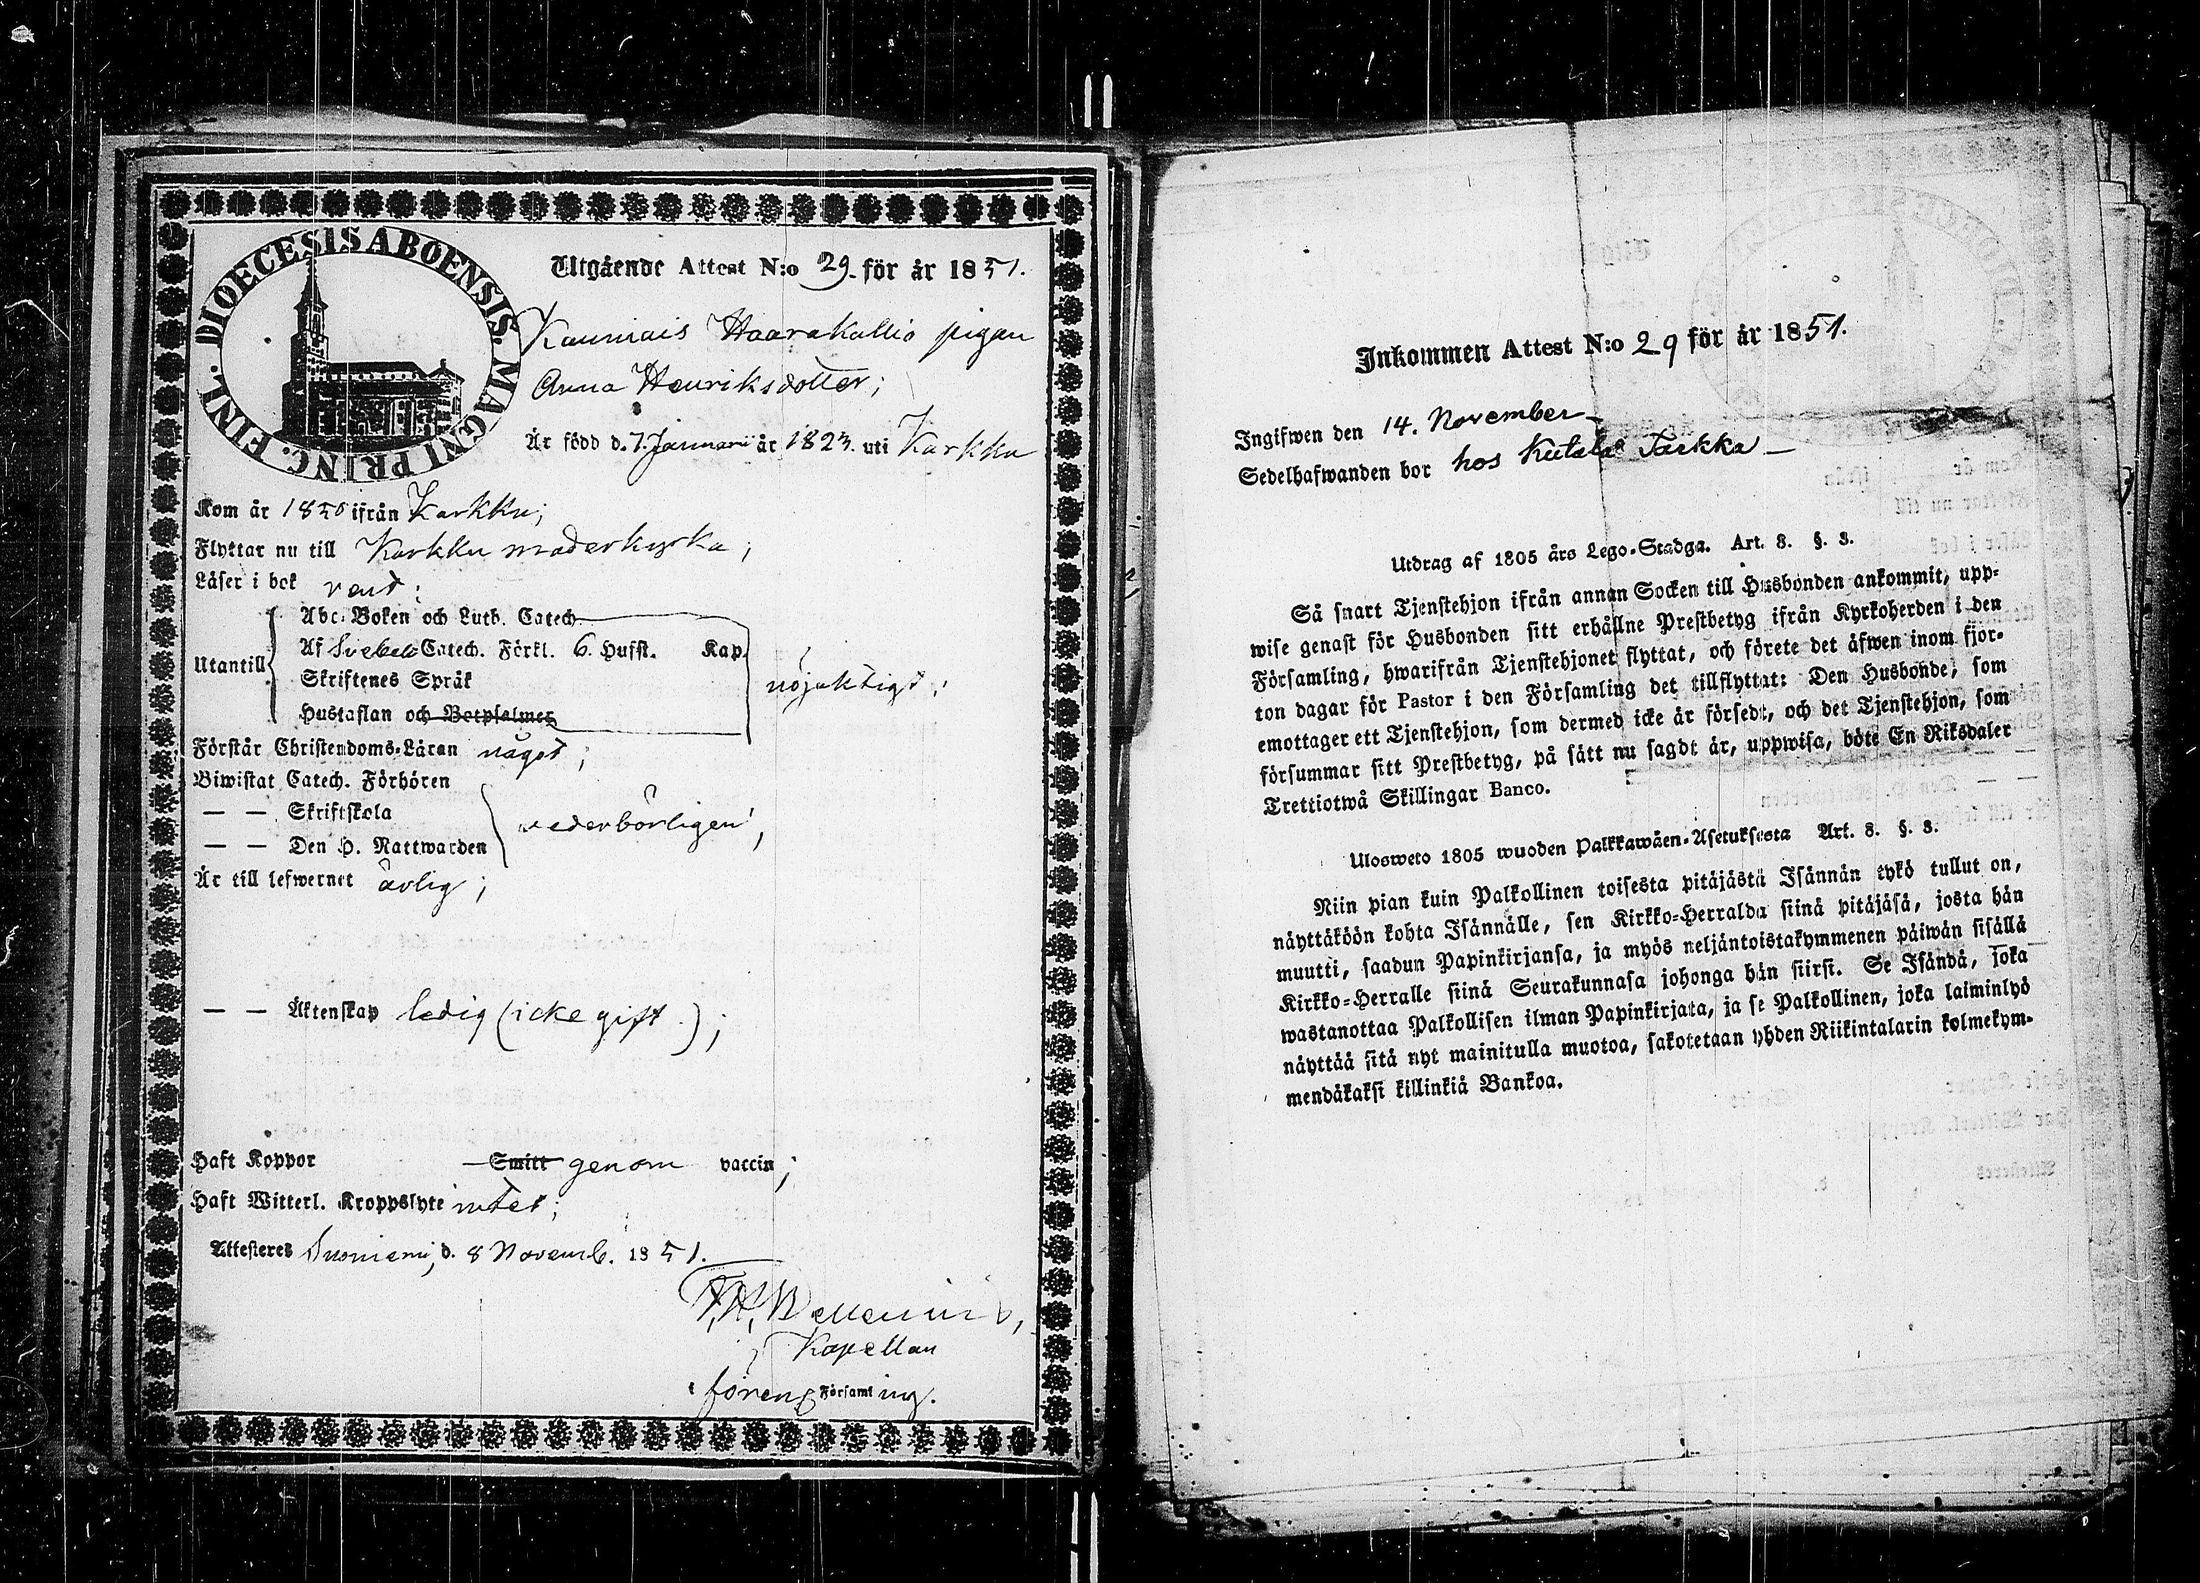 DIOECESIS ABOENSIS. MAGNI PRINC. FINL.
Utgående Attest N:o 29. för år 1851.
Kauniais Haarakallio pigan
Anna Henriksdotter;
Är född d. 7. Januarii år 1823. uti Karkku
Kom år 1850 ifrån Karkku;
Flyttar nu till Karkku moderkyrka;
Läser i bok rent;
Utantill
Abc-Boken och Luth. Catech.
Af Svebeli Catech. Förkl. 6. Hufst. Kap.
Skriftenes Språk
Hustaflan och Botpsalmer
nöjaktigt;
Förstår Christendoms-Läran något;
Biwistat Catech. Förhören
— — Skriftskola
— — Den H. Nattwarden
vederbörligen;
Är till lefwernet ärlig;
— — Äktenskap ledig (icke gift.);
Haft Koppor Smitt genom vaccin;
Haft Witterl. Kroppslyte intet;
Attesteres Suoniemi, d. 8 Novemb. 1851.
Kapellan
i förend Församling.
Inkommen Attest N:o 29 för år 1851.
Ingifwen den 14. November
Sedelhafwanden bor hos Kutala Tarkka
Utdrag af 1805 års Lego-Stadga. Art. 8. §. 3.
Så snart Tjenstehjon ifrån annan Socken till Husbonden ankommit, upp-
wise genast för Husbonden sitt erhållne Prestbetyg ifrån Kyrkoherden i den
Församling, hwarifrån Tjenstehjonet flyttat, och förete det äfwen inom fjor-
ton dagar för Pastor i den Församling det tillflyttat: Den Husbonde, som
emottager ett Tjenstehjon, som dermed icke är försedt, och det Tjenstehjon, som
försummar sitt Prestbetyg, på sätt nu sagdt är, uppwisa, böte En Riksdaler
Trettiotwå Skillingar Banco.
Ulosweto 1805 wuoden Palkkawäen-Asetuksesta Art. 8. §. 3.
Niin pian kuin Palkollinen toisesta pitäjästä Isännän tykö tullut on,
näyttäköön kohta Isännälle, sen Kirkko-Herralda siinä pitäjäsä, josta hän
muutti, saadun Papinkirjansa, ja myös neljäntoistakymmenen päiwän sisällä
Kirkko-Herralle siinä Seurakunnasa johonga hän siirsi. Se Isändä, joka
wastanottaa Palkollisen ilman Papinkirjata, ja se Palkollinen, joka laiminlyö
näyttää sitä nyt mainitulla muotoa, sakotetaan yhden Riikintalarin kolmekym-
mendäkaksi killinkiä Bankoa.